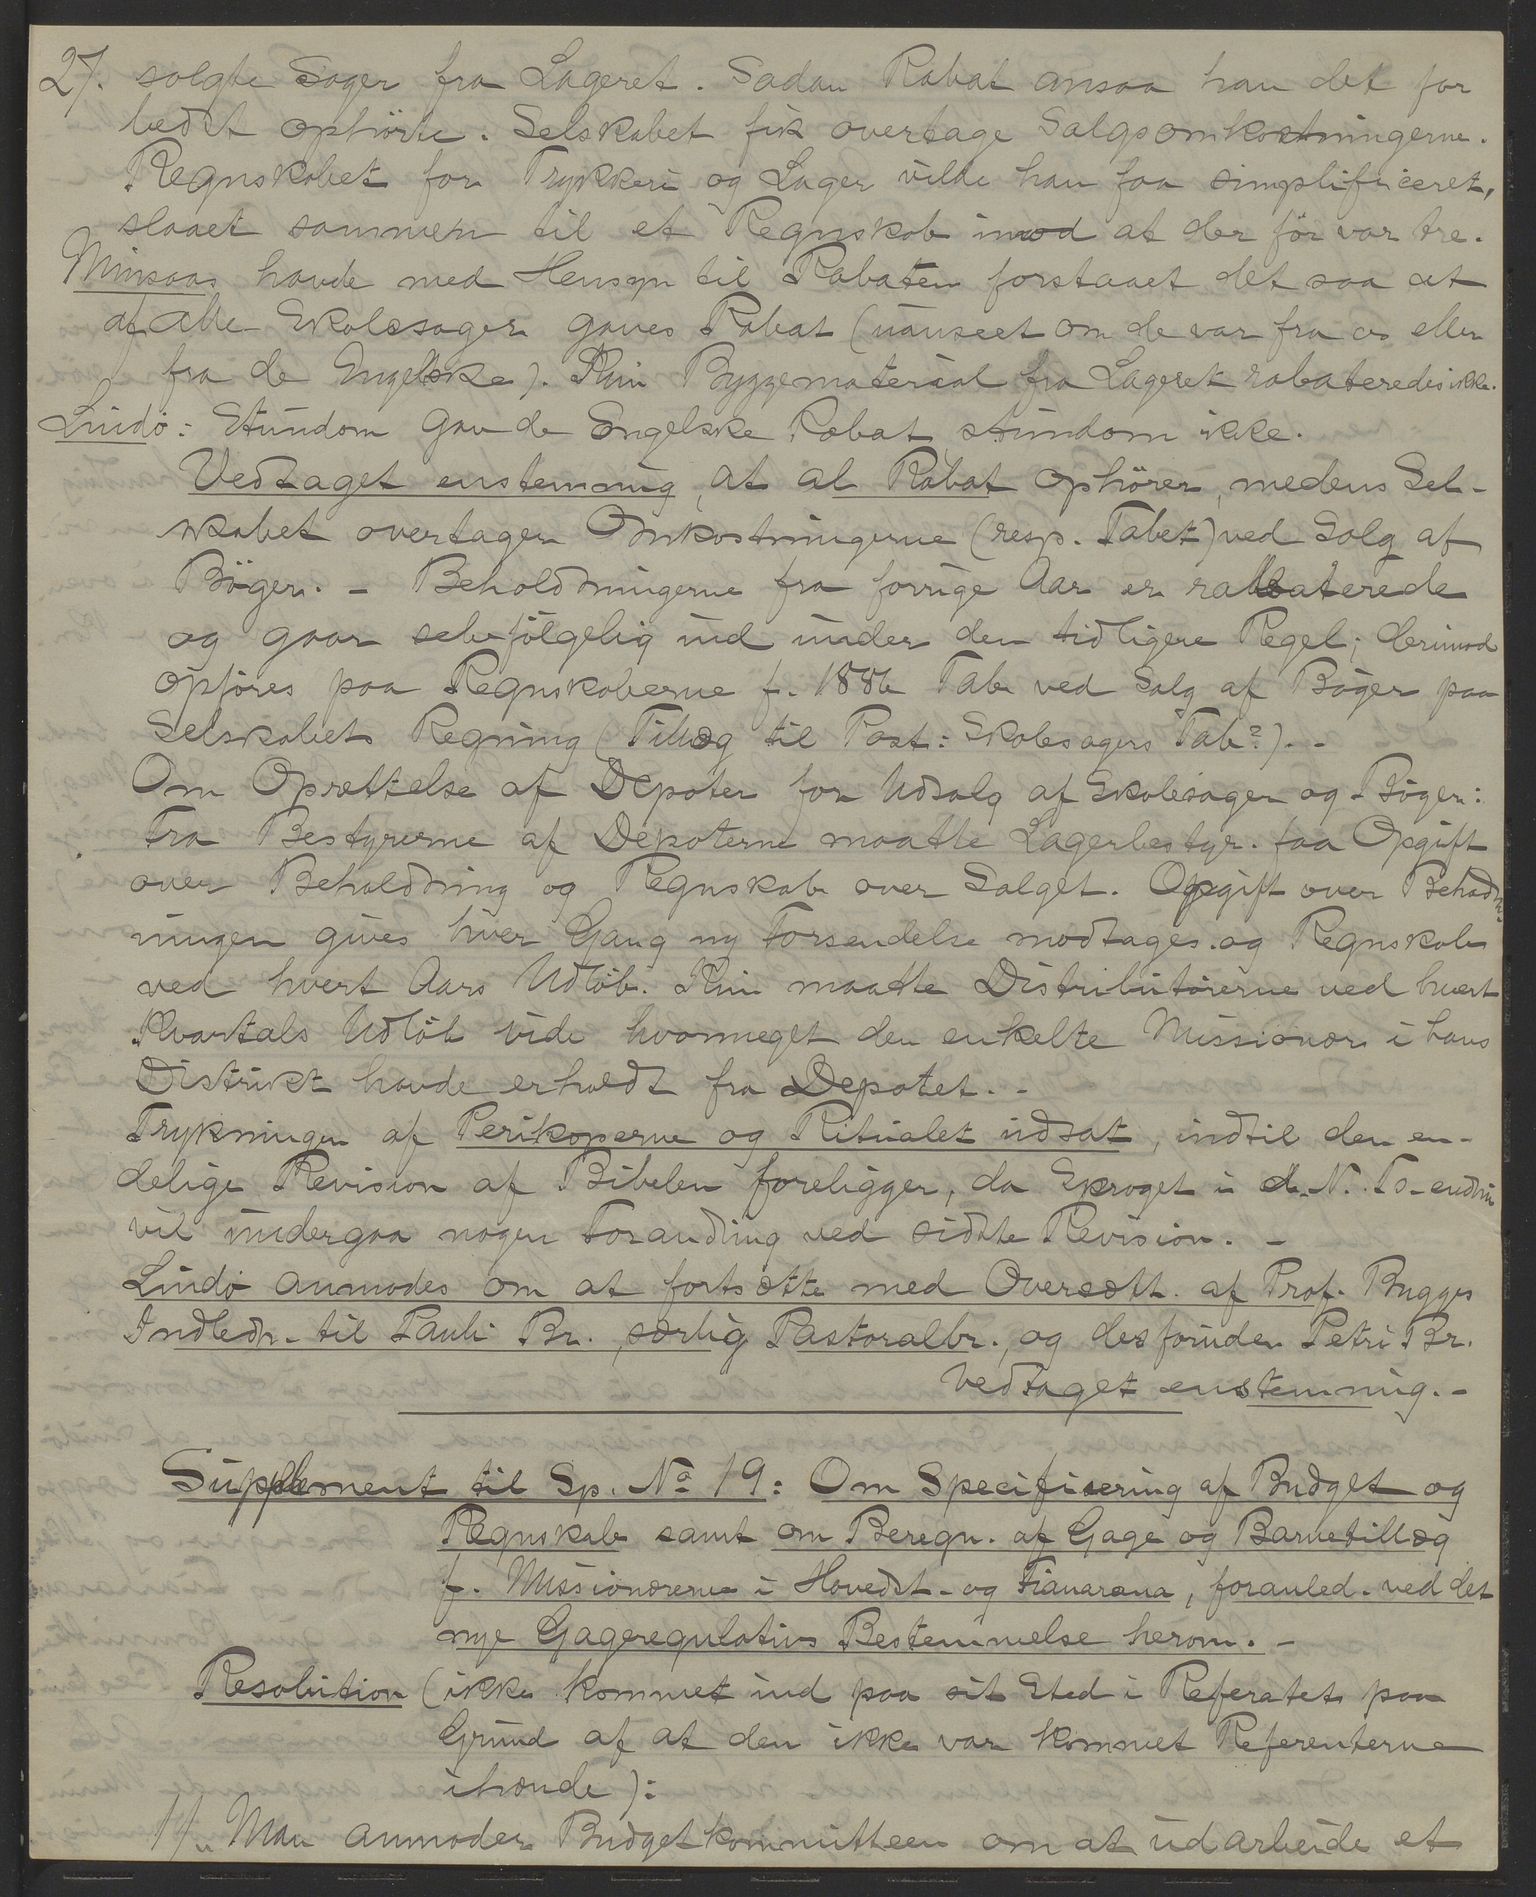 27. solgte Sager fra Lageret. Sadan Rabat ansaa han det for
bedst ophörte. Selskabet fik overtage Salgsomkostningerne.
Regnskabet for Trykkeri og Lager vilde han faa simplificeret,
slaaet sammen til et Regnskab imod at der för var tre.
Minsaas havde med Hensyn til Rabaten forstaaet det saa at
af alle Skolesager gaves Rabat (uanseet om de var fra os eller
fra de Engelske). Kun Byggematerial fra Lageret rabateredes ikke.
Lindö: Stundom gav de Engelske Rabat stundom ikke.
Vedtaget enstemmig, at al Rabat ophörer, medens Sel-
skabet overtager Omkostningerne (resp. Tabet) ved Salg af
Böger. - Beholdningerne fra forrige Aar er rabaterede
og gaar selvfölgelig ind under den tidligere Regel; derimod
opföres paa Regnskaberne f. 1886 Tab ved Salg af Böger paa
Selskabets Regning (Tillæg til Post: Skolesagers Tab?). -
Om Oprettelse af Depoter for Udsalg af Skolesager og Böger:
Fra Bestyrerne af Depoterne maatte Lagerbestyr. faa Opgift
over Beholdning og Regnskab over Salget. Opgift over Behold-
ningen gives hver Gang ny Forsendelse modtages og Regnskab
ved hvert Aars Udlöb. Kun maatte Distributörerne ved hvert
Kvartals Udlöb vide hvormeget den enkelte Missionær i hans
Distrikt havde erholdt fra Depotet. -
Trykningen af Perikoperne og Ritualet udsat, indtil den en-
delige Revision af Bibelen foreligger, da Sproget i d. N. Ts.
vil undergaa nogen Forandling ved sidste Revision. -
Lindö anmodes om at fortsætte med Oversætt. af Prof. Bugges
Indledn. til Pauli Br., særlig Pastoralbr., og desforuden Petri Br.
Vedtaget enstemmig. -
Supplement til Sp. No 19: Om Specifisering af Budget og
Regnskab samt om Beregn. af Gage og Barnetillæg
f. Missionærerne i Hovedst. og Fianarana, foranled. ved det
nye Gageregulativs Bestemmelse herom. -
Resolution (ikke kommet ind paa sit Sted i Referatet paa
Grund af at den ikke var kommet Referenterne
ihænde):
1/. Man anmoder Budgetkommitteen om at udarbeide et